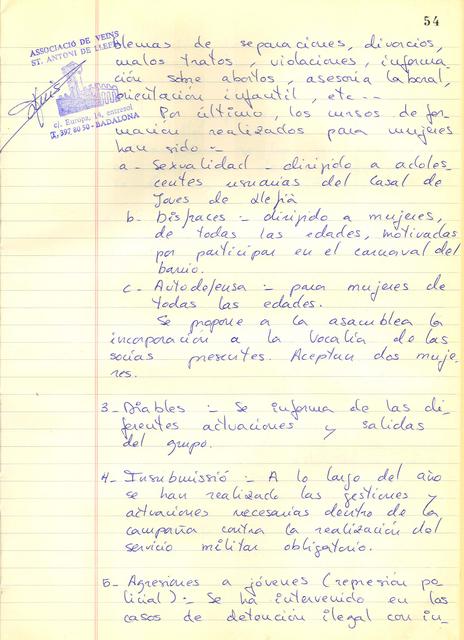 54
ASSOCIACIÓ DE VEINS
ST. ANTONI DE LLEFIÀ
c/. Europa, 14, entresol
T. 397 80 50 - BADALONA
blemas de separaciones, divorcios,
malos tratos, violaciones, informa-
ción sobre abortos, asesoria laboral,
orientación infantil, etc...
Por último, los cursos de for-
mación realizados para mujeres
han sido :-
a - Sexualidad - dirigido a adoles-
centes usuarias del Casal de
Joves de Llefià
b - Disfraces - dirigido a mujeres,
de todas las edades, motivadas
por participar en el carnaval del
barrio.
c - Autodefensa :- para mujeres de
todas las edades.
Se propone a la asamblea la
incorporación a la Vocalía de las
socias presentes. Aceptan dos muje-
res.
3 - Diables :- Se informa de las di-
ferentes actuaciones y salidas
del grupo.
4 - Insubmissió - A lo largo del año
se han realizado las gestiones y
actuaciones necesarias dentro de la
campaña contra la realización del
servicio militar obligatorio.
5 - Agresiones a jóvenes (represión po-
licial) :- Se ha intervenido en los
casos de detención ilegal con in-